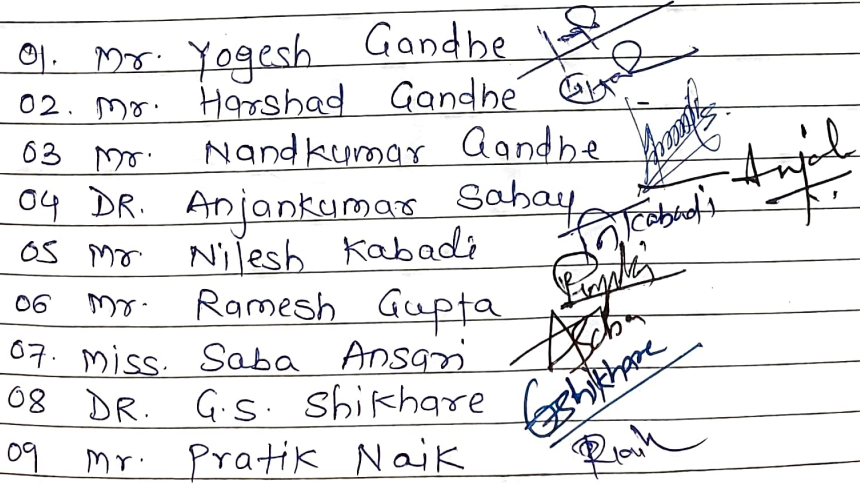 01. Mr. Yogesh Gandhe
02. Mr. Harshad Gandhe
03 Mr. Nandkumar Gandhe
04 DR. Anjankumar Sahay Anjak
05 Mr Nilesh Kabadi Nkabadi
06 Mr. Ramesh Gupta
07. Miss. Saba Ansari Saba
08 DR. G.S. Shikhare GShikhare
09 Mr. Pratik Naik PNaik